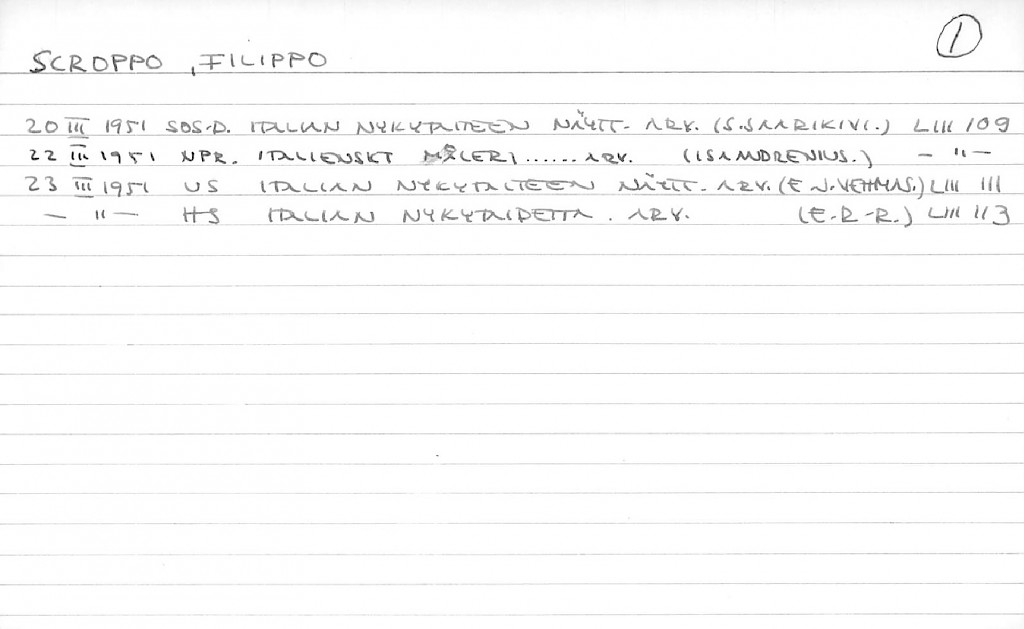 1
SCROPPO, FILIPPO
20 III 1951 SOS-D. ITALIAN NYKYTAITEEN NÄYTT. ARV. (S.SAARIKIVI.) LIII 109
22 III 1951 NPR. ITALIENSKT MÅLERI...... ARV. (ISA MDRENIUS.) — " —
23 III 1951 US ITALIAN NYKYTAITEEN NÄYTT. ARV. (E.J.VEHMAS.) LIII 111
— " — HS ITALIAN NYKYTAIDETTA. ARV. (E.R-R.) LIII 113